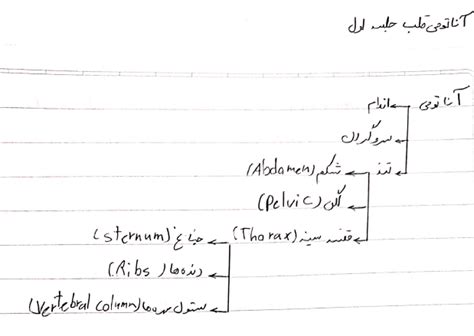 آناتومی قلب جلسه اول
آناتومی ← اندام
← سروگردن
← تنه ← شکم (Abdomen)
← لگن (Pelvic)
← قفسه سینه (Thorax) ← جناغ (sternum)
← دنده‌ها (Ribs)
← ستون مهره‌ها (Vertebral column)